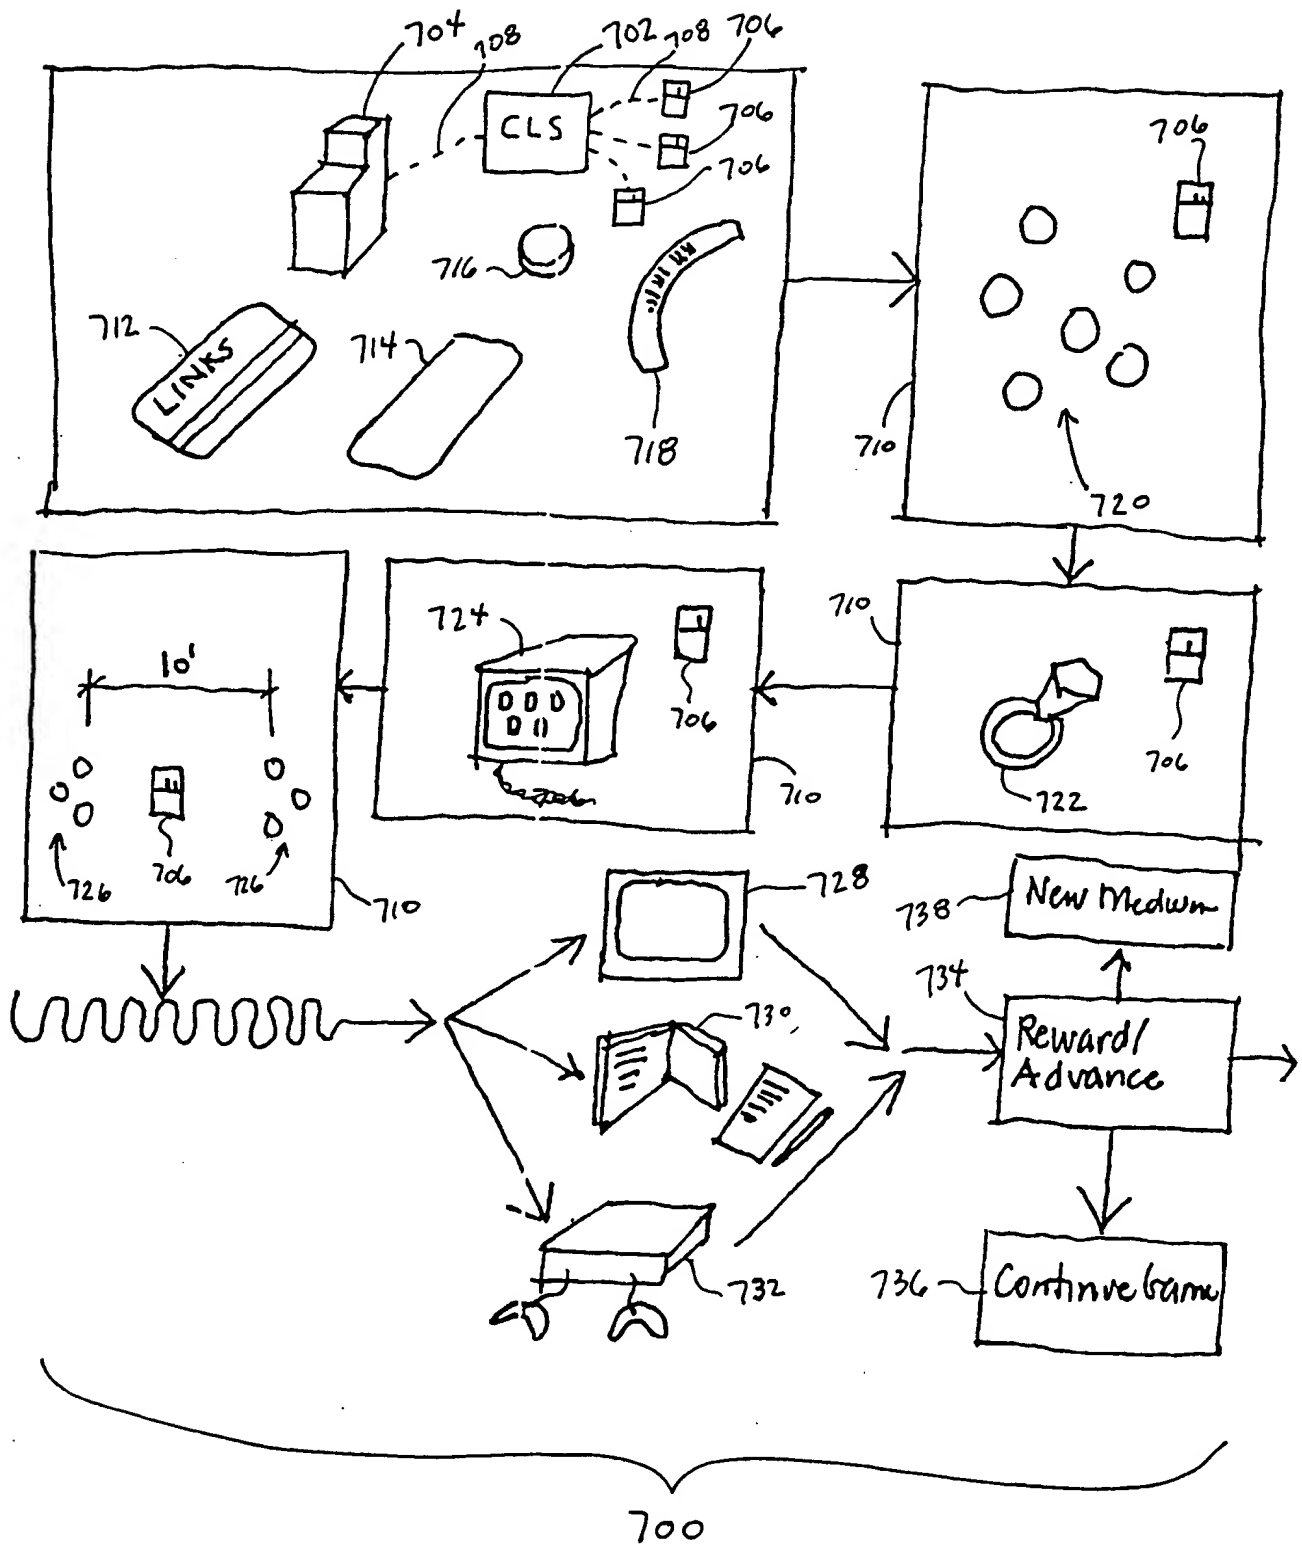 704
708
702
708
706
CLS
706
706
706
716
712
LINKS
714
718
710
720
10'
724
706
710
706
722
710
726
706
726
710
728
738
New Medium
730
734
Reward/
Advance
732
736
Continue Game
700